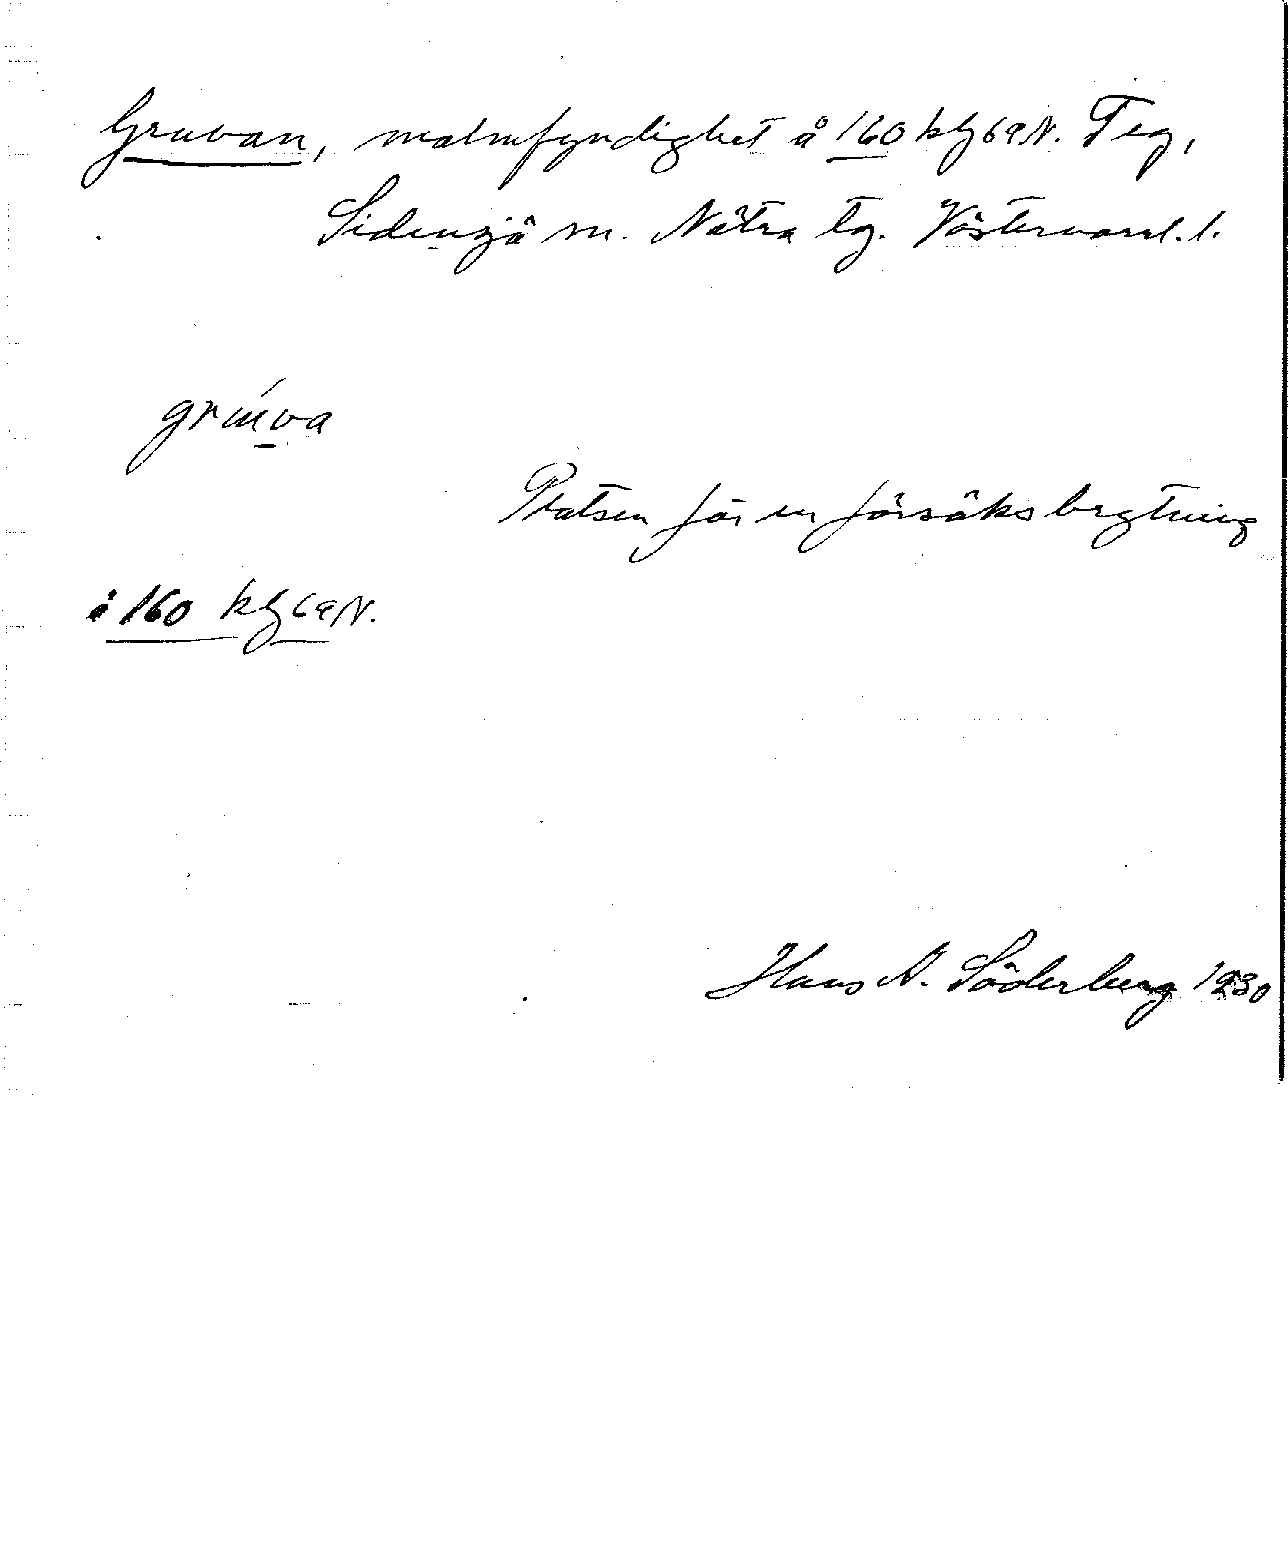 Gruvan, malmfyndighet å 160 Teg,
Sidensjö sn. Nätra tg. Västernorrl. l.
Platsen för en försöksbrytning
160
Hans A. Söderberg 1930